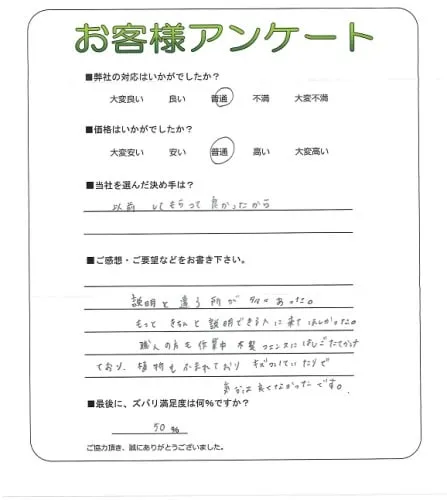 お客様アンケート
■弊社の対応はいかがでしたか？
大変良い 良い 普通 不満 大変不満
■価格はいかがでしたか？
大変安い 安い 普通 高い 大変高い
■当社を選んだ決め手は？
以前 してもらって 良かったから
■ご感想・ご要望などをお書き下さい。
説明と違う所が多々あった。
もっと きちんと説明できる人に来てほしかった。
職人の方も作業中 木製フェンスにはしごたてかけ
ており、植物もふまれており キズついていたりで
良くなかったです。
■最後に、ズバリ満足度は何%ですか？
50 %
ご協力頂き、誠にありがとうございました。